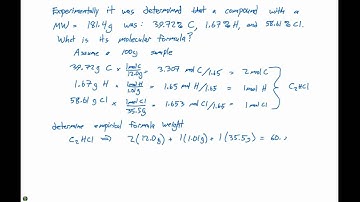 Experimentally it was determined that a compound with a
MW = 181.4g was: 39.72% C, 1.67% H, and 58.61% Cl.
What is its molecular formula?
Assume a 100g sample
39.72g C × 1mol C / 12.0g = 3.307 mol C/1.65 = 2 mol C
1.67g H × 1mol H / 1.01g = 1.65 mol H/1.65 = 1 mol H } C2HCl
58.61g Cl × 1mol Cl / 35.5g = 1.653 mol Cl/1.65 = 1 mol Cl
determine empirical formula weight
C2HCl ⇒ 2(12.0g) + 1(1.01g) + 1(35.5g) = 60.